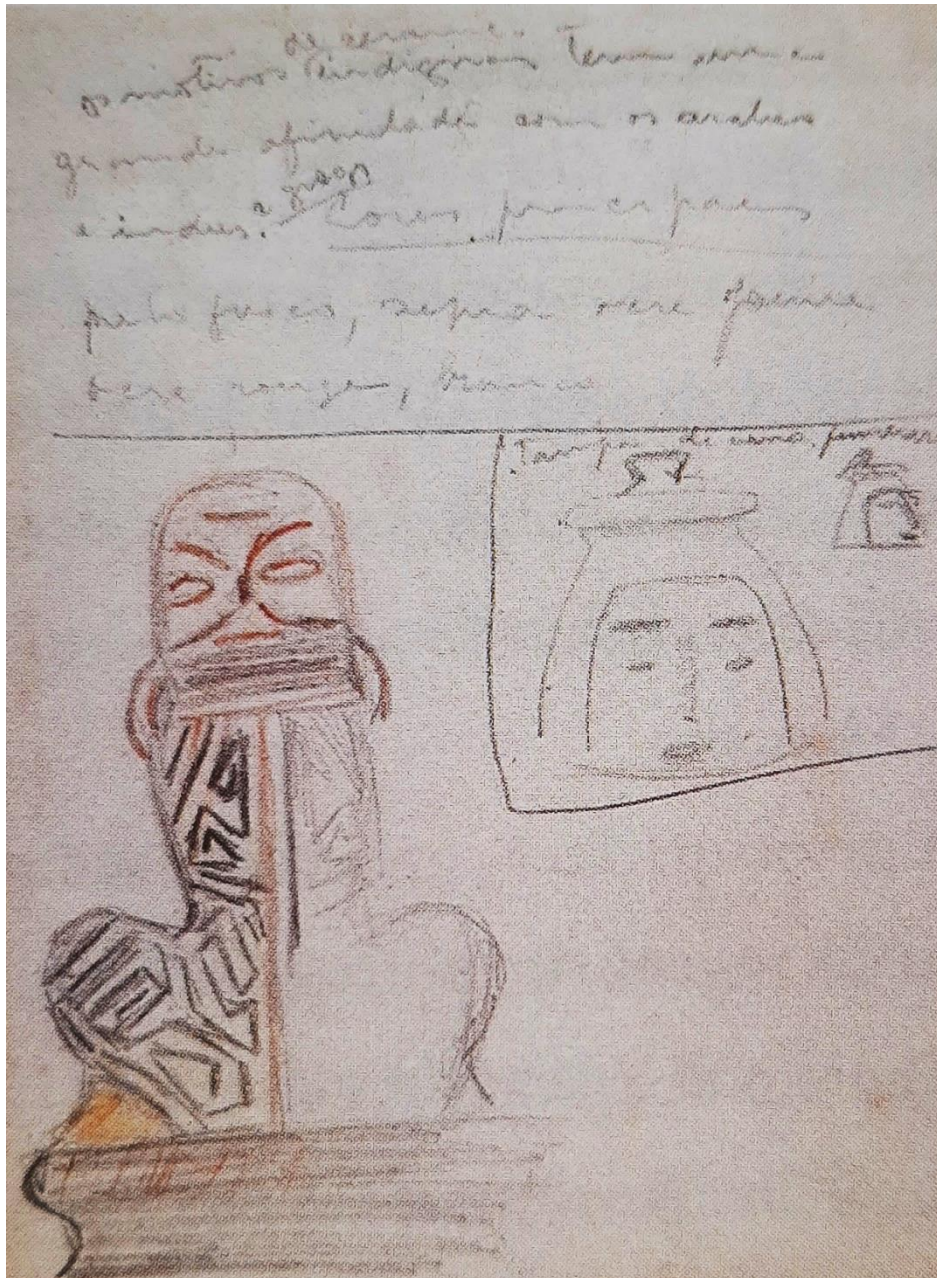 de ceramica
os motivos indigenas tem uma
grande afinidade com os arabes
e indus. Cores principaes
preto fusco, sepia
rouge, branco
Tampa de urna funeraria